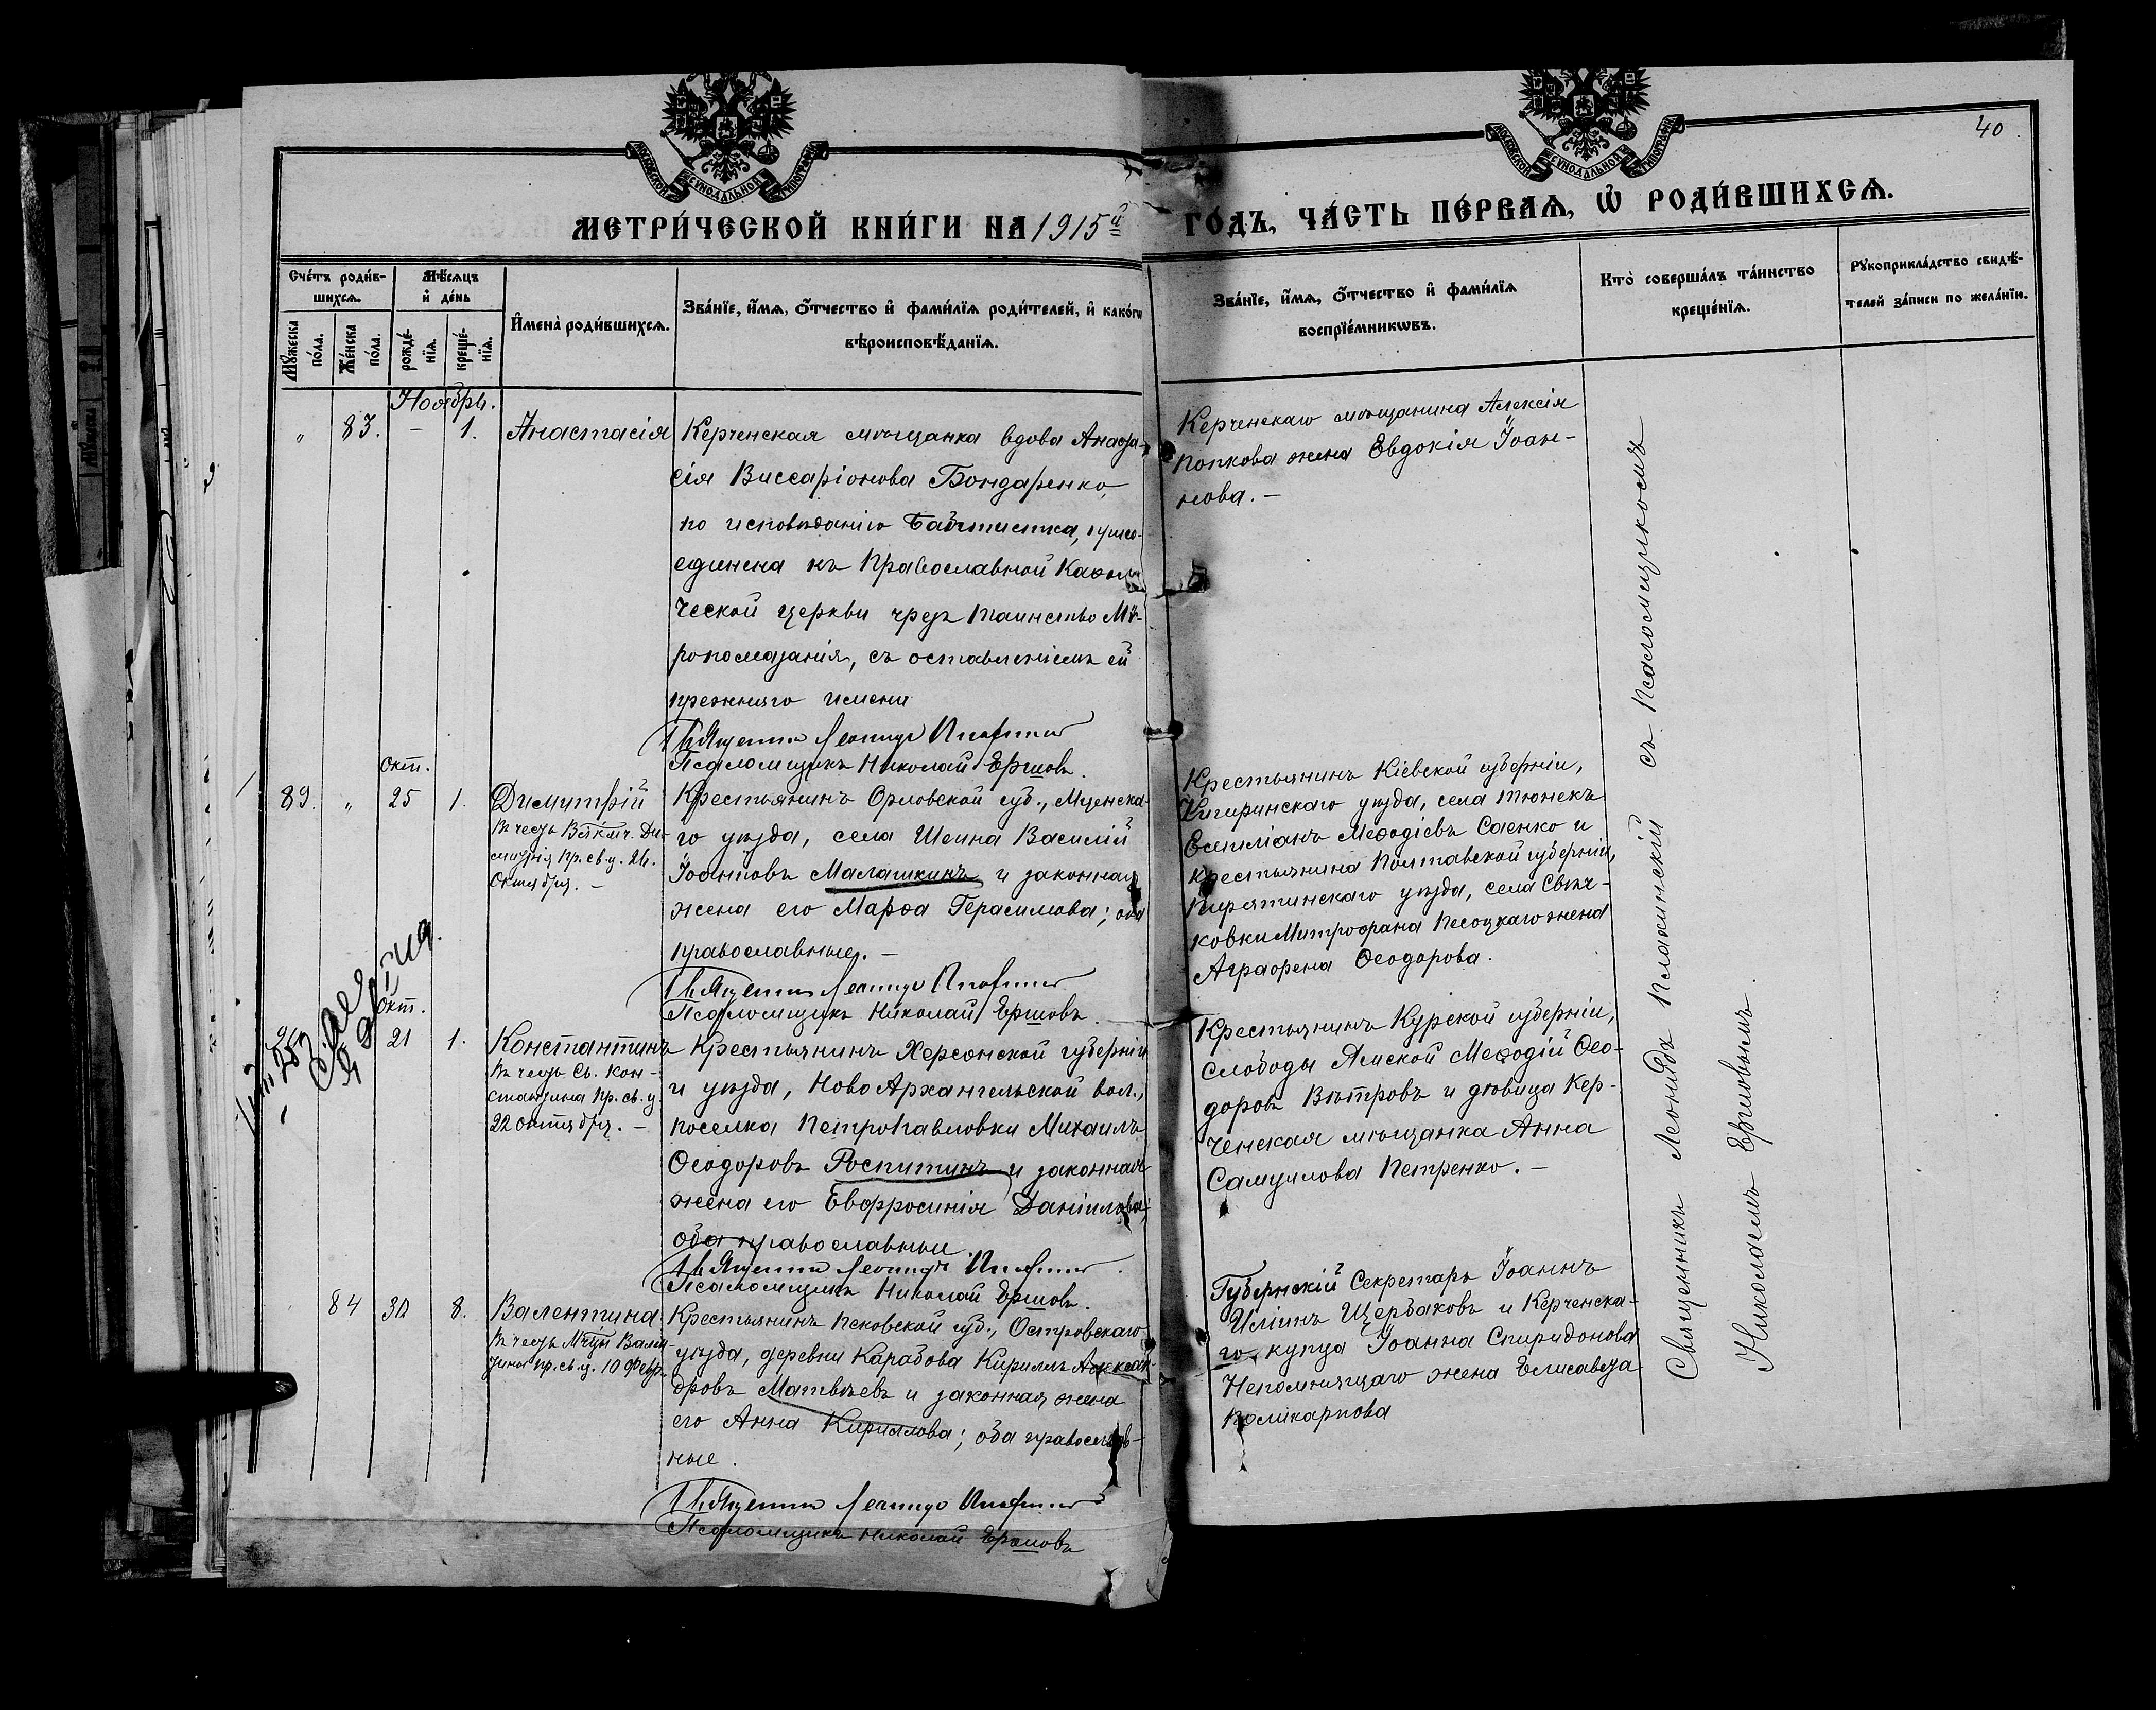 40
МЕТРИ́ЧЕСКОЙ КНИ́ГИ НА 1915й ГО́ДЪ, ЧА́СТЬ ПЕ́РВАѦ, Ѡ РОДИ́ВШИХСѦ.
Сче́тъ роди́в-
шихсѧ.
Мꙋ́жеска по́ла.
Же́нска по́ла.
Мѣ́сѧцъ
и҆ де́нь
рожде́-
нїѧ.
креще́-
нїѧ.
И҆мена̀ роди́вшихсѧ.
Зва́нїе, и҆́мѧ, ѻ҆́тчество и҆ фами́лїѧ роди́телей, и҆ како́гѡ
вѣроисповѣ́данїѧ.
Зва́нїе, и҆́мѧ, ѻ҆́тчество и҆ фами́лїѧ
воспрїе́мникѡвъ.
Кто̀ соверша́лъ та́инство
креще́нїѧ.
Рꙋкоприкла́дство свидѣ́-
телей за́писи по жела́нїю.
Ноябрь.
" 83. – 1. Анастасія
Керченская мѣщанка вдова Анаста-
сія Виссаріонова Бондаренко,
по исповѣданію Баптистка, присо-
единена къ Православной Каѳоли
ческой церкви чрезъ таинство Мѵ-
ропомазанія, съ оставленіемъ ей
прежняго имени
Священникъ Леонидъ
Псаломщикъ Николай Ершовъ.
Керченскаго мѣщанина Алексія
Попкова жена Евдокія Іоан-
нова. –
Окт.
89. " 25 1. Димитрій
Въ честь Вмкмч. Ди-
митрія пр. св. ц. 26.
Октября. –
Крестьянинъ Орловской губ., Мценска-
го уѣзда, села Шеина Василій
Іоанновъ Малашкинъ и законная
жена его Марѳа Герасимова; оба
православные. –
Священникъ Леонидъ
Псаломщикъ Николай Ершовъ
Крестьянинъ Кіевской губерніи,
Чигиринскаго уѣзда, села Тюнекъ
Емиліанъ Меѳодіевъ Саенко и
крестьянина Полтавской губерніи,
Пирятинскаго уѣзда, села Свѣч-
ковки Митрофана Песоцкаго жена
Аграфена Ѳеодорова.
Окт.
21 1. Константинъ
Въ честь Св. Кон-
стантина пр. св. ц.
22 октября. –
Крестьянинъ Херсонской губерніи
и уѣзда, Ново Архангельской вол.,
поселка Петропавловки Михаилъ
Ѳеодоровъ Роспитинъ и законная
жена его Евфросинія Даніилова;
оба православные
Священникъ Леонидъ
Псаломщикъ Николай Ершовъ.
Крестьянинъ Курской губерніи,
слободы Ямской Меѳодій Ѳео-
доровъ Вѣтровъ и дѣвица Кер-
ченская мѣщанка Анна
Самуилова Петренко. –
84 30 8. Валентина
Въ честь Мчцы Вален-
тины пр. св. ц. 10 Февр.
Крестьянинъ Псковской губ., Островскаго
уѣзда, деревни Карабова Кириллъ Александ-
дровъ Матвѣевъ и законная жена
его Анна Кириллова; оба православ-
ные.
Священникъ Леонидъ
Псаломщикъ Николай Ершовъ
Губернскій Секретарь Іоаннъ
Иліинъ Щербаковъ и Керченска-
го купца Іоанна Спиридонова
Непомнящаго жена Елисавета
Поликарпова
Священникъ Леонидъ съ Псаломщикомъ
Николаемъ Ершовымъ.